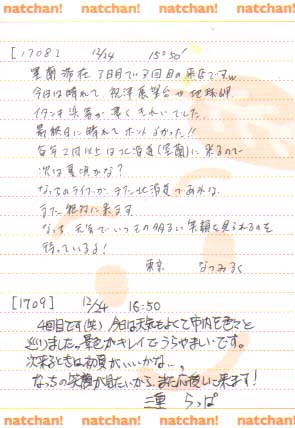 natchan! natchan! natchan! natchan! natchan!
[1708] 12/24 15:50
室蘭滞在 7日目で7回目の来店ですw
今日は晴れて、祝津展望台や地球岬、
イタンキ浜等が凄くきれいでした。
最終日に晴れてホントよかった!!
毎年2回以上は北海道(室蘭)に来るので
次は夏頃かな?
なっちのライブが、また北海道であれば、
また絶対に来ます。
なっち、元気でいつもの明るい笑顔を見られるのを
待っているよ!
東京 なつみるく
[1709] 12/24 16:50
4回目です(笑) 今日は天気もよくて市内を色々と
巡りました。景色がキレイでうらやましいです。
次来るときは初夏がいいかな…。
なっちの笑顔が見たいから、また応援しに来ます!
らっぱ
natchan! natchan! natchan! natchan! natchan!